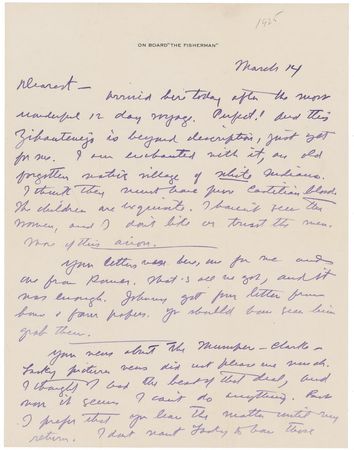 1925
ON BOARD "THE FISHERMAN"
March 14
Dearest —
Arrived here today after the most
wonderful 12 day voyage. Perfect! And this
Zihuatenejo is beyond description, just yet
for me. I am enchanted with it, an old
forgotten native village of white Indians.
I think they must have pure Castilian blood.
The children are exquisite. I haven't seen the
women, and I don't like or trust the men.
More of this anon.
Your letters were here, one for me and
one from Romer. That's all we got, and it
was enough. Johnny got four letters from
home & four papers. You should have seen him
grab them.
Your news about the Mumper - Clark -
Lasky picture news did not please me much.
I thought I had the best of that deal, and
now it seems I can't do anything. But
I prefer that you leave the matter until my
return. I don't want Lasky to have those